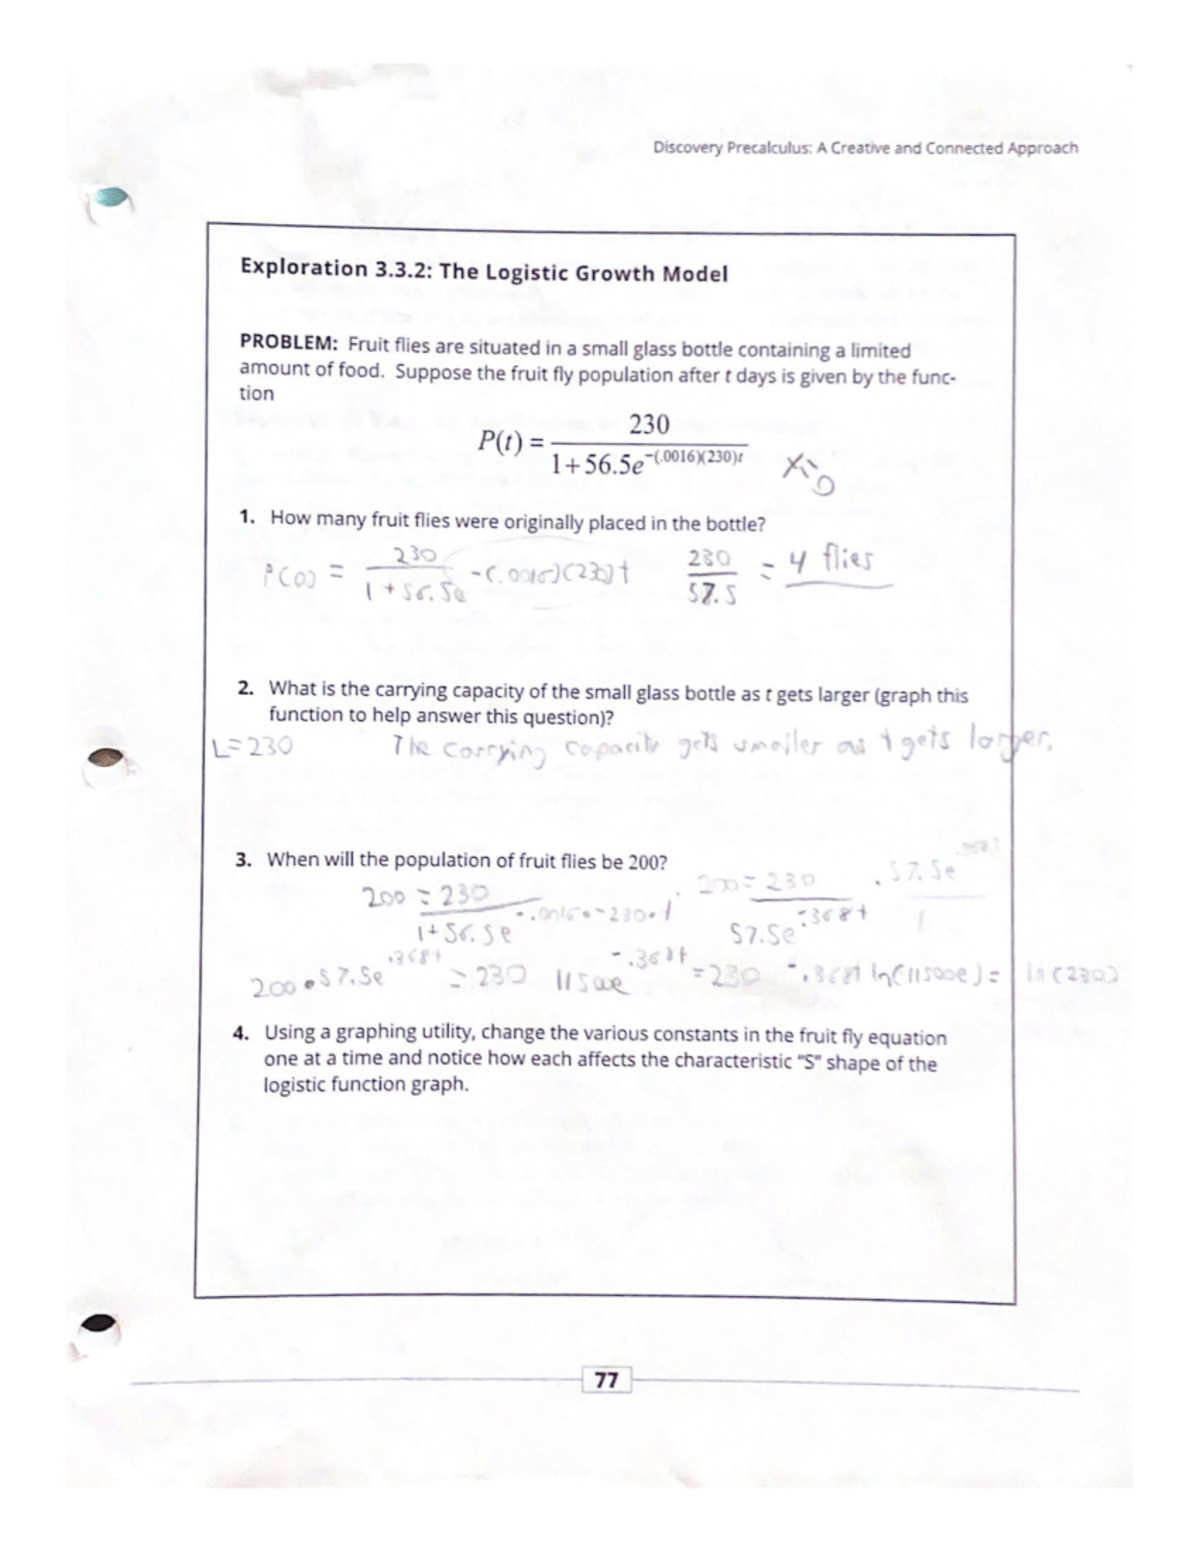 Discovery Precalculus: A Creative and Connected Approach
Exploration 3.3.2: The Logistic Growth Model
PROBLEM: Fruit flies are situated in a small glass bottle containing a limited
amount of food. Suppose the fruit fly population after t days is given by the func-
tion
P(t) = 230 / 1+56.5e^-(.0016)(230)t
1. How many fruit flies were originally placed in the bottle?
P(0) = 230 / 1+56.5e -(.0016)(230)t 230 / 57.5 = 4 flies
2. What is the carrying capacity of the small glass bottle as t gets larger (graph this
function to help answer this question)?
L=230 The carrying capacity gets smaller as t gets larger.
3. When will the population of fruit flies be 200?
200 = 230 / 1+56.5e^-.0016·-230·t 200 = 230 / 57.5e^-.368t · 57.5e
200·57.5e^.368t = 230 11500e^-.368t = 230 -.368t ln(11500e) = ln(230)
4. Using a graphing utility, change the various constants in the fruit fly equation
one at a time and notice how each affects the characteristic "S" shape of the
logistic function graph.
77